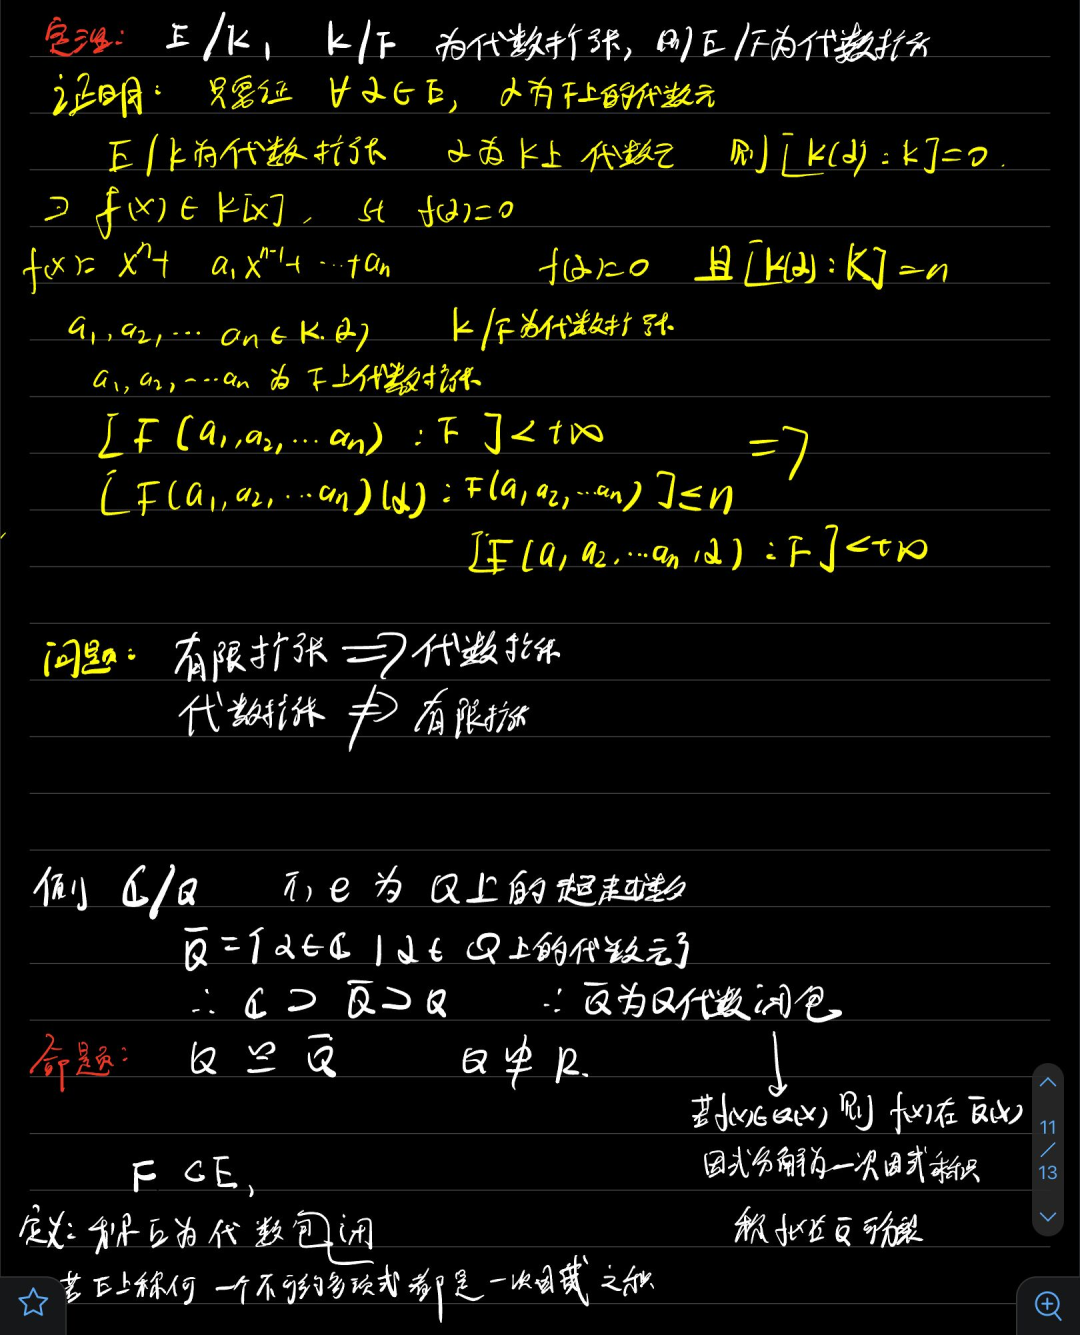 定理: E/K, K/F 为代数扩张, 则 E/F为代数扩张
证明: 只要证 ∀α∈E, α为F上的代数元
E/K为代数扩张 α为K上代数元 则[K(α):K]=0.
∃ f(x)∈K[x], st f(α)=0
f(x)= xⁿ+ a₁xⁿ⁻¹+…+aₙ f(α)=0 且[K(α):K]=n
a₁,a₂,…aₙ∈K K/F为代数扩张
a₁,a₂,…aₙ 为F上代数扩张
[F(a₁,a₂,…aₙ):F]<+∞ =>
[F(a₁,a₂,…aₙ)(α):F(a₁a₂,…aₙ)]≤n
[F(a₁a₂,…aₙ,α):F]<+∞
问题: 有限扩张 => 代数扩张
代数扩张 ≠> 有限扩张
例 ℂ/Q π, e 为 Q上的超越数
Q̄={α∈ℂ|α∈Q上的代数元}
∴ ℂ⊃Q̄⊃Q ∴ Q̄为Q代数闭包
命题: Q ≌ Q̄ Q ≇ R.
若f(x)∈Q(x) 则 f(x)在Q̄(x)
因式分解为一次因式乘积
称f(x)在Q̄可分裂
F⊂E,
定义: 称E为代数包闭
若E上任何一个不可约多项式都是一次因式之积
11
/
13